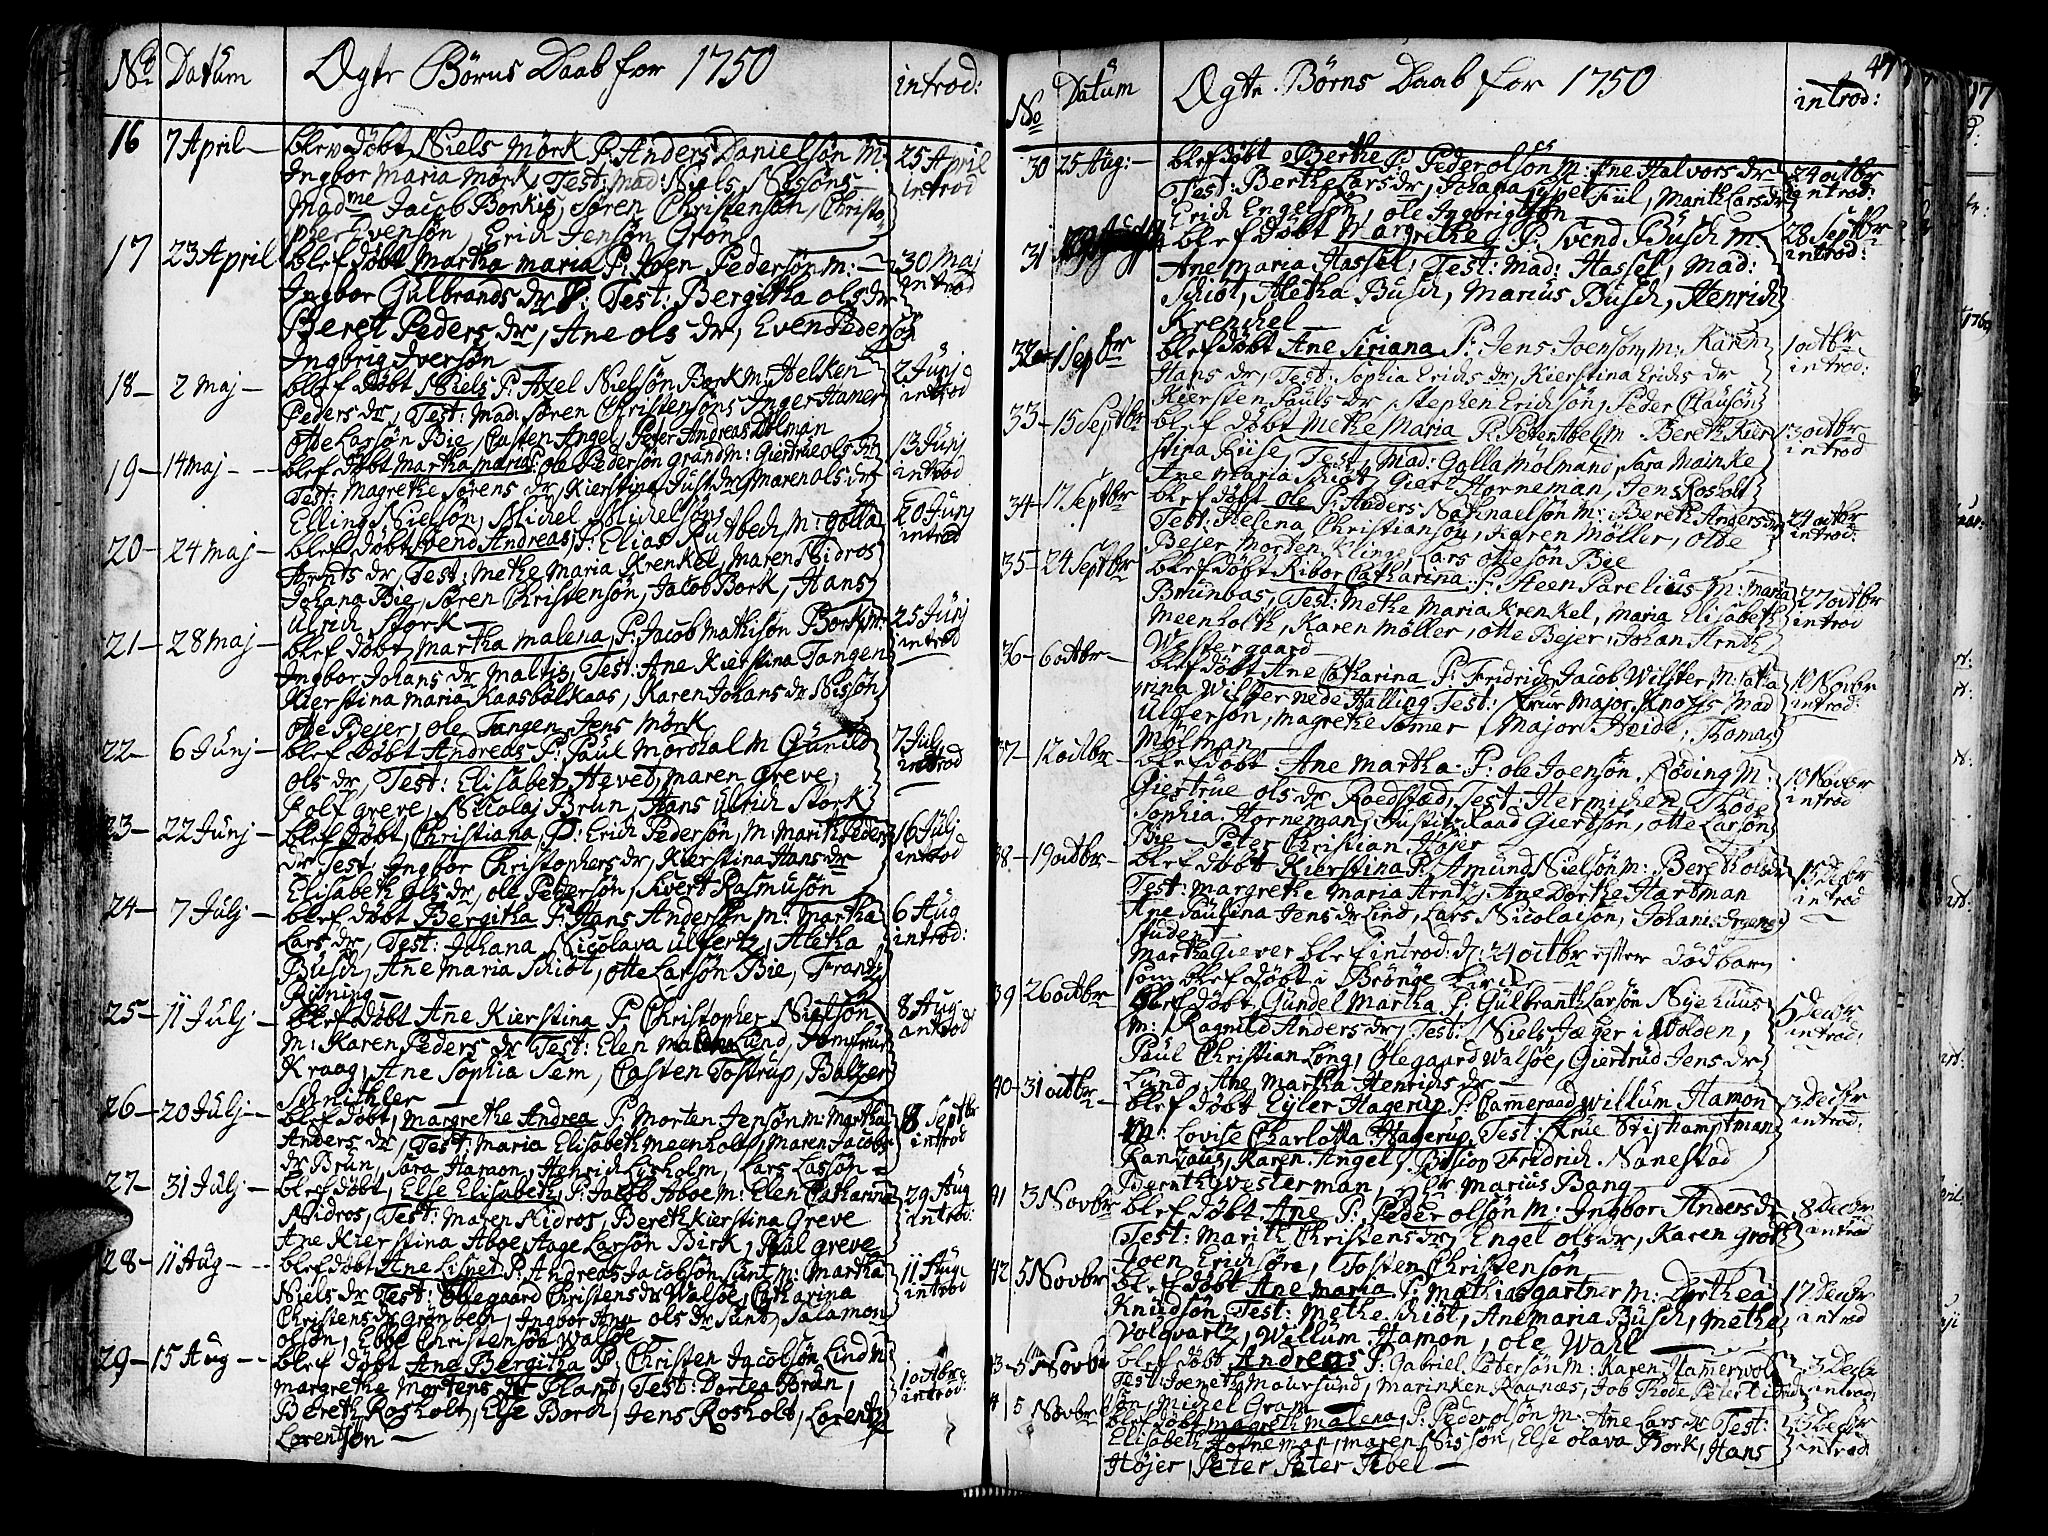 No Datum Ægte Børns Daab for 1750 introd:
16 7 April blev døbt Niels Mörk P: Anders Danielsön M: 25 April
Ingbor Maria Mörk, Test: Mad: Niels Nissöns introd
Madme Jacob Borkis, Sören Christensön, Christo
pher Evensön, Erich Jensön Grön
17 23 April blef döbt Martha maria P: Joen Pedersön M: 30 Maj
Ingbor Gulbrands dr Test: Bergitha ols dr introd
Berett Peders dr, Ane ols dr, Even Peders
Ingbrig Iversön
18 2 Maj blef döbt Niels P: Axel Nielsön Bork M: Helken 2 Junj
Peders dr, Test: Mad: Sören Christensöns Inger Hamer introd
Otte Larsön Bie, Casten Angel, Peter Andreas Dolman
19 14 maj blef döbt Martha maria P: ole Pedersön Grand M: Giertrue ols dr 13 Junj
Test: Magrethe Sörens dr, Kierstina Just dr, Maren ols dr introd
Elling Nielsön, Michel Michelsön
20 24 maj blef döbt Svend Andreas, P: Elias Rutbech, M: Golla 20 Junj
Arnts dr, Test: Methe Maria Krenkel, Maren Nidros introd
Johana Bie, Sören Christensön, Jacob Bork, Hans
Ulrich Stork
21 28 maj blef döbt Martha malena, P: Jacob Mathisön Bork M: 25 Junj
Ingbor Johans dr Maltis, Test: Ane Kierstina Tangen introd
Kierstina maria Kaasbölkaas, Karen Johans dr Nissön
Otte Bejer, ole Tangen, Jens Mörk
22 6 Junj blef döbt Andreas P: Paul Mordal M Gunild 7 Julj
ols dr, Test: Elisabet Hevet, maren Greve, introd
Rolf greve, Nicolaj Brun, Hans Ulrich Stork
23 22 Junj blef döbt, Christiana, P: Erich Pedersön, M: Marith Peders 16 Julj
dr Test: Ingbor Christophers dr, Kierstina Hans dr introd
Elisabeth ols dr, ole Pedersön, Sivert Rasmusön
24 7 Julj blef döbt Bergitha P: Hans Andersön M: Martha 6 Aug
Lars dr, Test: Johana Nicolava Ulfertz, Aletha introd:
Busch, Ane maria Schiöt, otte Larsön Bie, Frandz
Röning
25 11 Julj blef döbt Ane Kierstina P: Christopher Nielsön 8 Aug
M: Karen Peders dr Test: Elen Lund, Jomfrue introd
Kraag, Ane Sophia Sem, Casten Tostrup, Balzer
Schnithler
26 20 Julj blef döbt, margrethe Andrea P: Morten Jensön M: Martha 8 Septbr
Anders dr, Test: Maria Elisabeth Meenholt, Maren Jacobs introd
dr Brun, Sara Hamon, Henrich Lisholm, Lars Lassön
27 31 Julj blef döbt, Else Elisabeth, P: Jacob Aboe M: Elen Catharina 29 Aug
Nidros, Test: Maren Nidros, Bereth Kierstina Greve introd:
Ane Kierstina Aboe, Aage Larsön Birk, Paul greve
28 11 Aug blef döbt Ane Lisbet P: Andreas Jacobsön Sunt M: Martha 11 Aug
Niels dr Test: Ollegaard Christens dr Walsöe, Catharina introd
Christens dr Grönbech, Ingbor Ane ols dr Sunt, Salamon
olsön, Ebbe Christensön Walsöe
29 15 Aug blef döbt Ane Bergitha P: Christen Jacobsön Lind M: 1 octbr
margrethe Mortens dr Pland, Test: Dortea Brun, introd:
Bereth Rosholt, Else Borch, Jens Rosholt, Lorentz
Lorentsön
47
No Datum Ægte Børns Daab for 1750 introd:
30 25 Aug: blef döbt Berthe P Peder olsön M: Ane Halvors dr 24 octbr
Test: Berthe Lars dr, Johana Fiil, Marith Lars dr introd:
Erich Engelsön, ole Ingbrigtsön
31 blef döbt Margrethe P: Svend Busch M: 28 Septbr
Ane Maria Hassel, Test: Mad: Hassel, Mad: introd:
Schiöt, Aletha Busch, Marius Busch, Henrich
Krenckel
32 1 Septbr blef döbt Ane Siriana P: Jens Joensön, M: Karen 1 octbr
Hans dr, Test: Sophia Erichs dr, Kierstina Erichs dr introd:
Kiersten Pauls dr, Stephen Erichsön, Peder Clausön
33 15 Septbr blef döbt Methe Maria P: Peter Abel M: Bereth Kier 13 octbr
stina Riise, Test: Mad: Golla Mölman, Sara Mainke introd
Ane Maria Schiöt, Giert Horneman, Jens Rosholt
34 17 Septbr blef döbt ole P: Anders Nathnaelsön M: Bereth Anders dr 24 octbr
Test: Helena Christiansön, Karen Möller, Otte introd:
Bejer Morten Klinge, Lars Ottesön Bie
35 24 Septbr blef döbt Ribor Catharina P: Steen Parelius M: Maria 27 octbr
Brunbas, Test: Methe Maria Krenkel, Maria Elisabeth introd
Meenholth, Karen Möller, otte Bejer, Johan Arnth
Westergaard
36 6 octbr blef döbt Ane Catharina P: Fridrich Jacob Wilster M: Catha 10 Novbr
rina Wilster nede Halling Test: Frue Major Knoffs Mad introd:
Ulgersön, Magrethe Sömer, Major Heide, Thomas
Mölman
37 12 octbr blef döbt Ane Martha P: ole Joensön, Röding M: 10 Novbr
Giertrue ols dr Roedstæd, Test: Hermichen Thode introd
Sophia Horneman, Justitz Raad Giertsön, otte Larsön
Bie, Peter Christian Höjer
38 19 octbr blef döbt Kierstina P: Amund Nielsön M: Bereth ols dr 15 decbr
Test: Margrethe Maria Arntz, Ane Dorthe Hartman introd
Ane Paulina Jens dr Lind, Lars Nicolaisön, Johanis
Student
Martha Giever blef introd: d: 24 octbr efter död barn
som blef döbt i Brönöe Kird
39 26 octbr blef döbt Gundel Martha P: Gulbranth Larsön Nye Huus 5 decbr
M: Ragnild Anders dr, Test: Niels Jæger i Wolden, introd:
Paul Christian Long, Olegaard Walsöe, Giertrud Jens dr
Lund, Ane Martha Henrichs dr
40 31 octbr blef döbt Eyler Hagerup P: Cammeraad Willum Hamon 3 Decbr
M: Lovise Charlotta Hagerup, Test: Frue Stifthamptman introd:
Ranzaus, Karen Angel, Bisiop Fridrich Nanestad
Bernth Westerman, Hr Marius Bang
41 3 Novbr blef döbt Ane P: Peder olsön M: Ingbor Anders dr 8 Decbr
Test: Marith Christens dr, Engel ols dr, Karen Groth introd
Joen Erichsöre, Tosten Christensön
42 5 Novbr blef döbt Ane Maria P: Mathias gartner M: Dorthea 17 Decbr
Knudsön, Test: Methe Schiöt, Ane maria Busch, Methe introd
Volqvartz, Willum Hamon, ole Wahl
43 5 Novbr blef döbt Andreas P: Gabriel Pedersön M: Karen Hamervold 3 Decbr
Test: Joeneth Maursund, Marinken Raanæs, Job Thode, Peter Didrich introd
sön, Michel Gram
44 15 Novbr blef döbt Magreth Malena P: Peder olsön M: Ane Lars dr Test: 13 Decbr
Elisabeth Horneman, Maren Nissön, Else olava Bork, Hans introd
Höjer, Peter Peter Abel